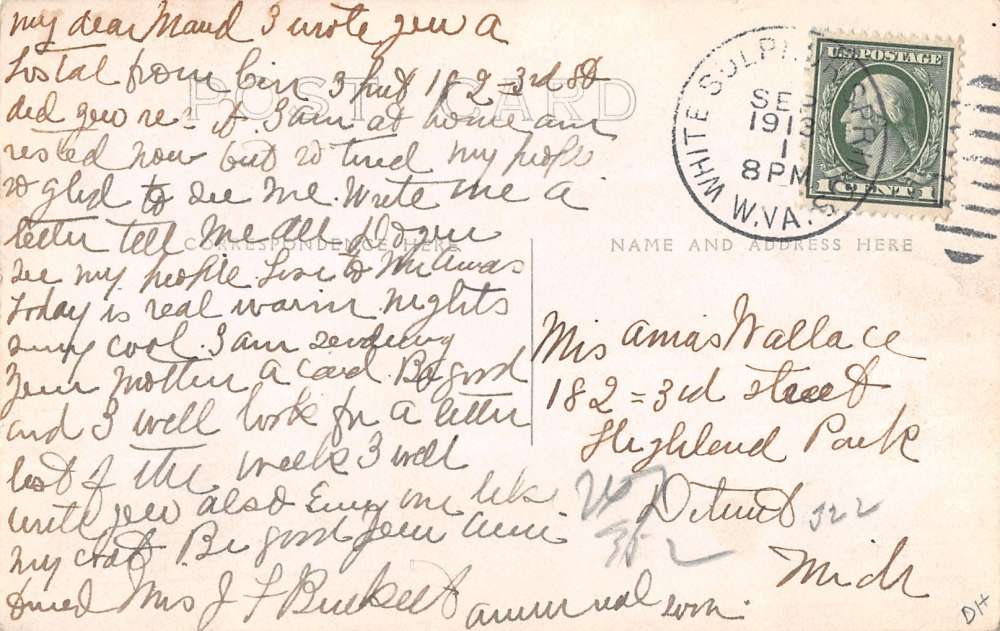 My dear Maud I wrote you a
Postal from Cin I put 182 = 3rd St
did you re- it. I am at home am
rested now but so tired my people
so glad to see me. Write me a
letter tell me all do you
see my people. Love to
today is real warm nights
very cool. I am sending
your mother a card. Be good
and I will look for a letter
last of the week I will
write you also Every one like
my coat. Be good your
Mrs J F Burkett
POST CARD
CORRESPONDENCE HERE
WHITE SULPHUR SPRINGS
W.VA.
SEP
1913
8 PM
U.S. POSTAGE
1 CENT 1
NAME AND ADDRESS HERE
Mrs Amas Wallace
182 = 3rd street
Highland Park
Detroit 322
Mich
DH